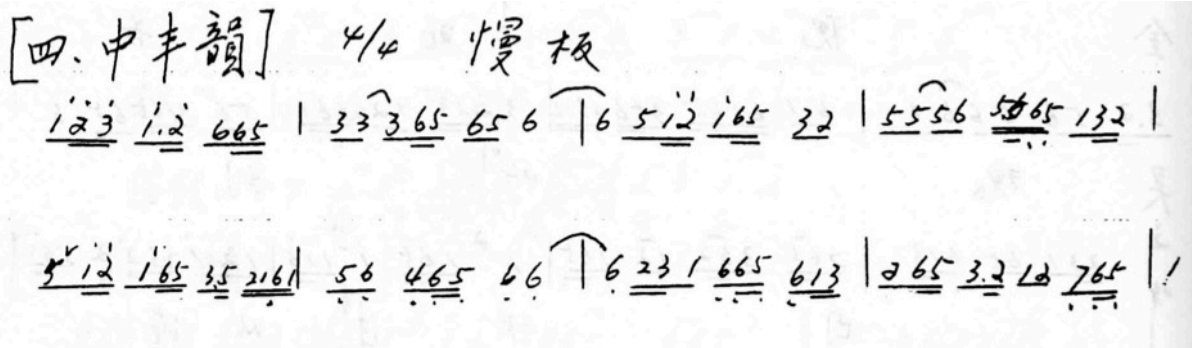 [四、中丰韻] 4/4 慢板
123 1.2 665 | 33 3 65 65 6 | 6 5 12 165 32 | 5556 5565 132 |
5 12 165 35 2161 | 56 465 66 | 6 231 665 613 | 265 3.2 12 765 | 1